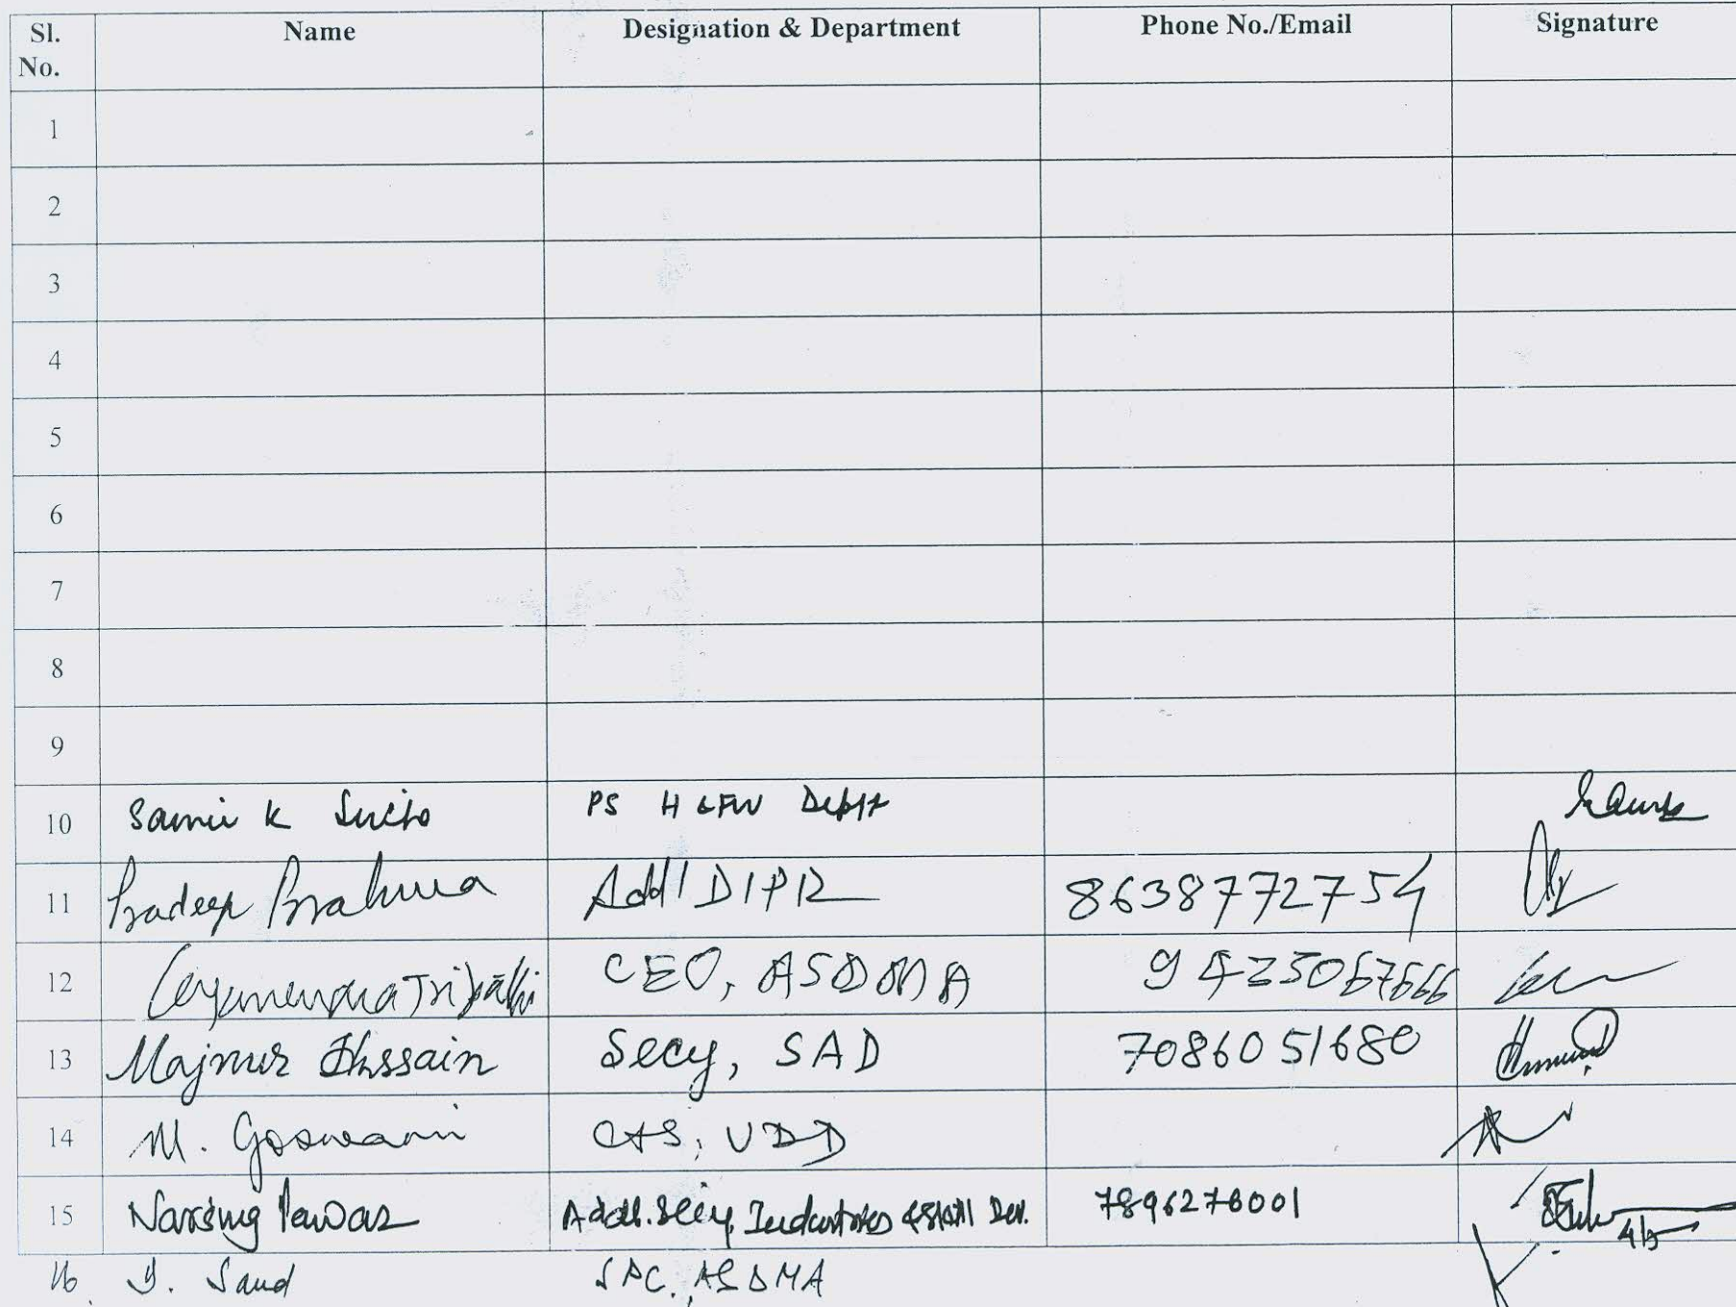 Sl. No. Name Designation & Department Phone No./Email Signature
1
2
3
4
5
6
7
8
9
10 Samir K PS H &FW Deptt
11 Pradeep Brahma Addl DIPR 8638772754
12 Gyanendra Tripathi CEO, ASDMA
13 Hussain Secy, SAD 7086051680
14 M. Goswami UDD
15 Narsing Pawar Addl. Secy, Industries & Skill Dev. 7896276001
16 SPC, ASDMA